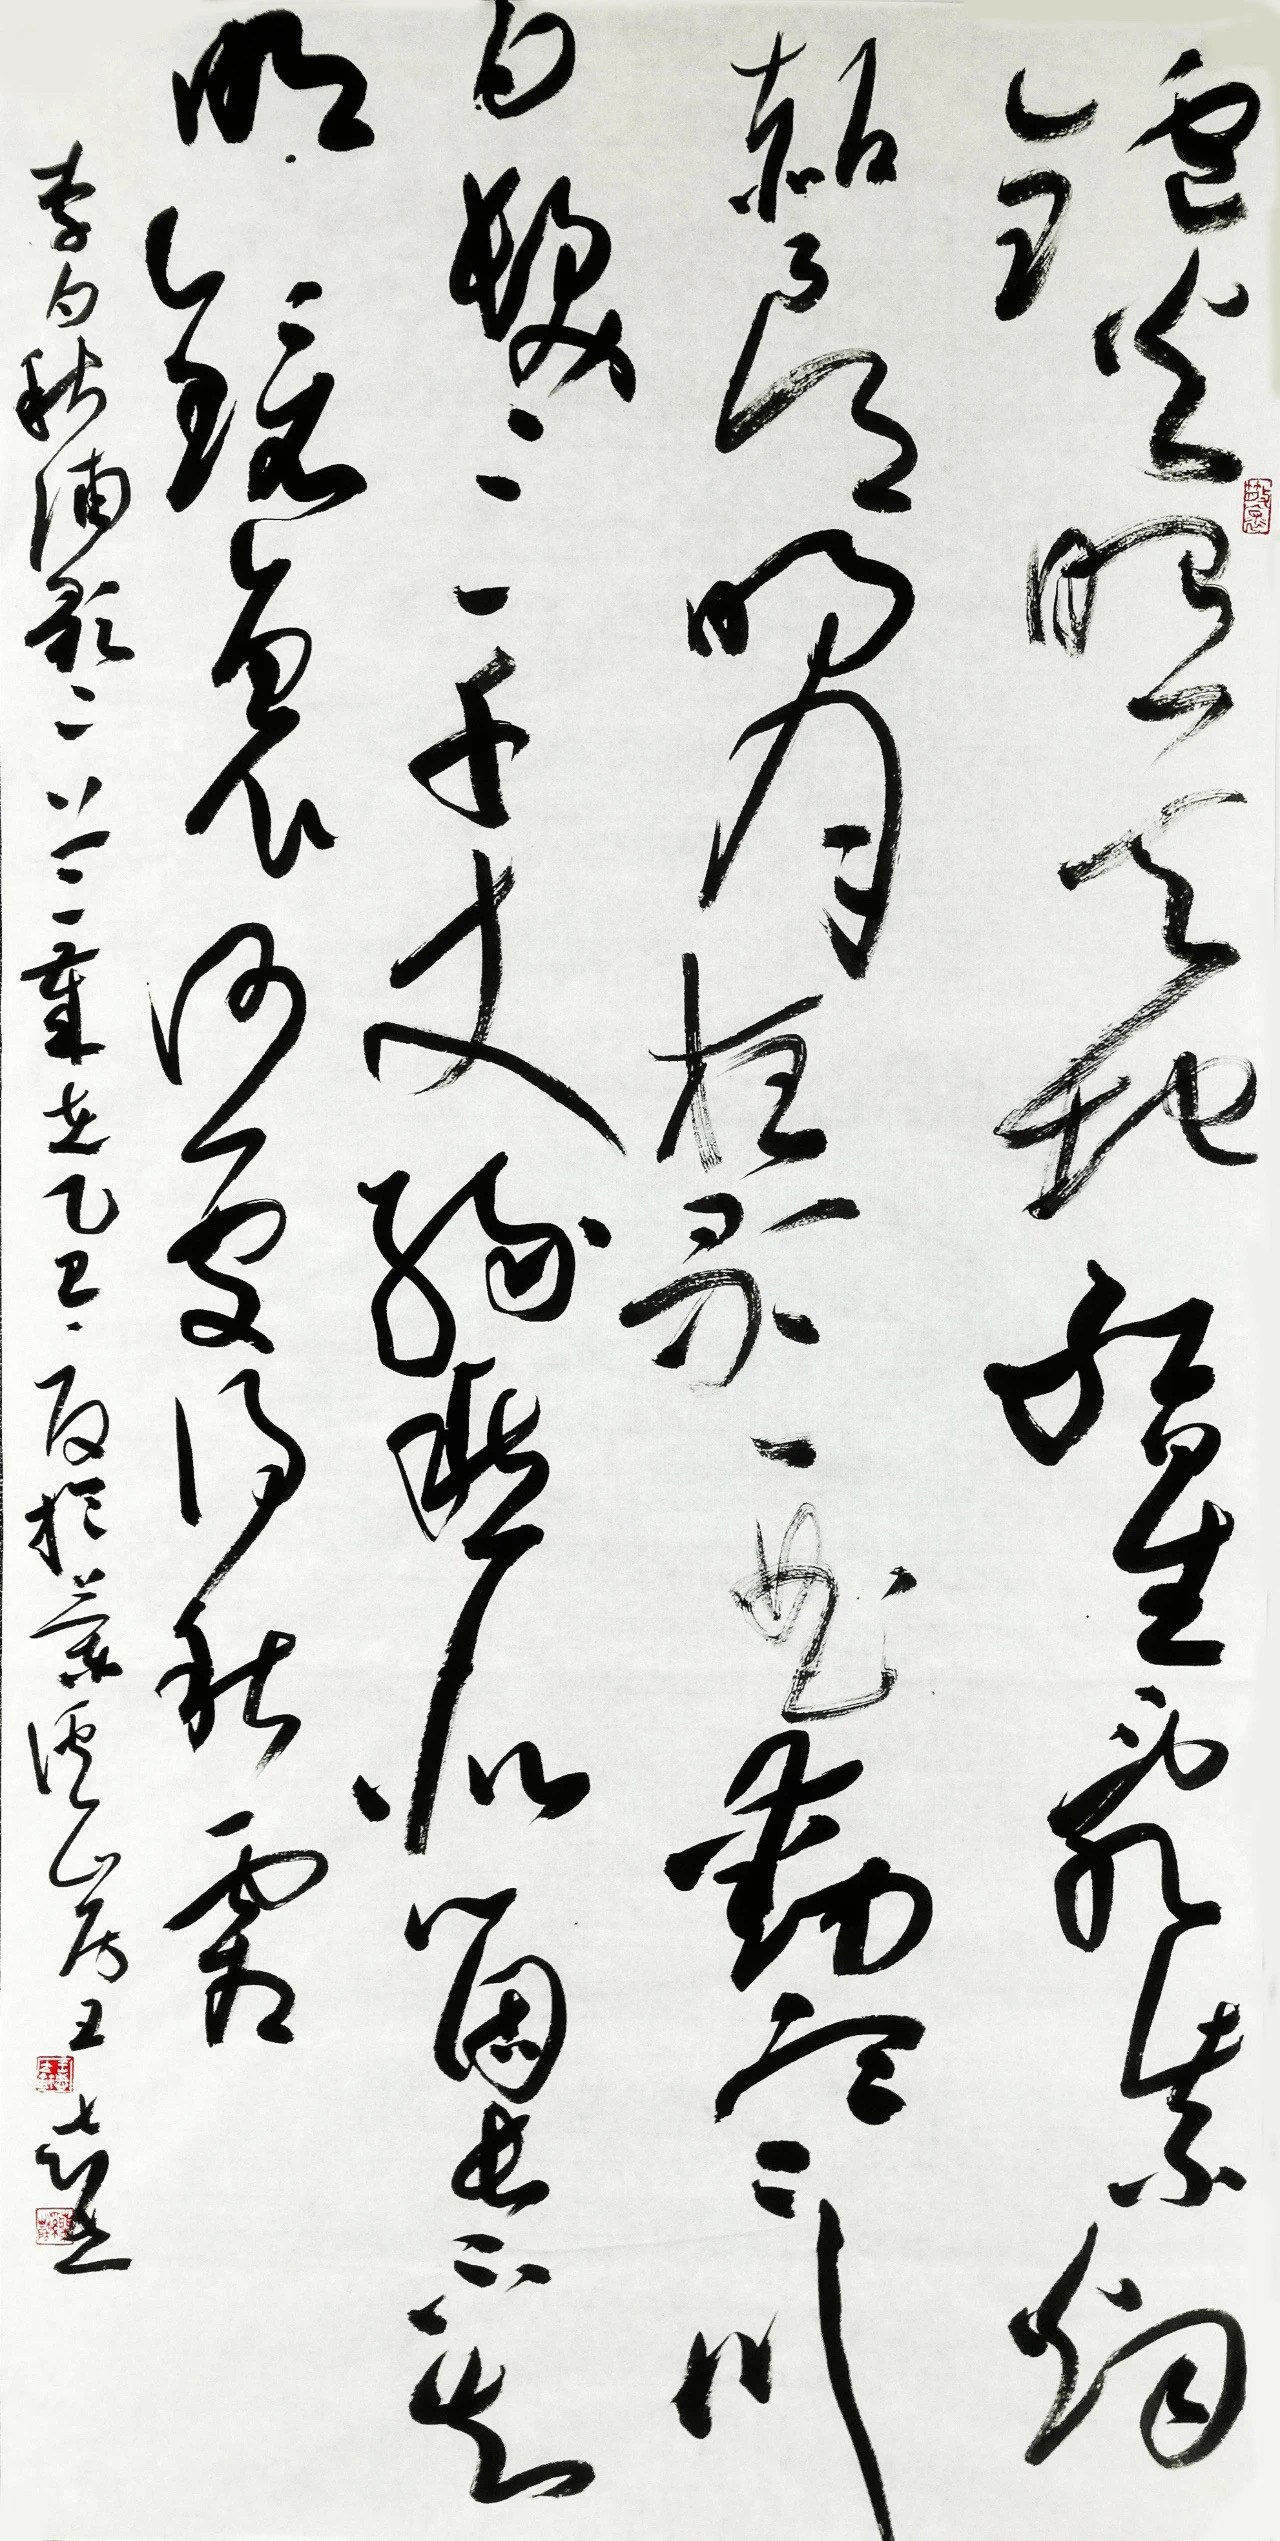 鑪火照天地紅星亂紫煙
赧郎明月夜歌曲動寒川
白髮三千丈緣愁似箇長不知
明鏡裏何處得秋霜
李白秋浦歌二首歲在乙巳夏於溪山房王